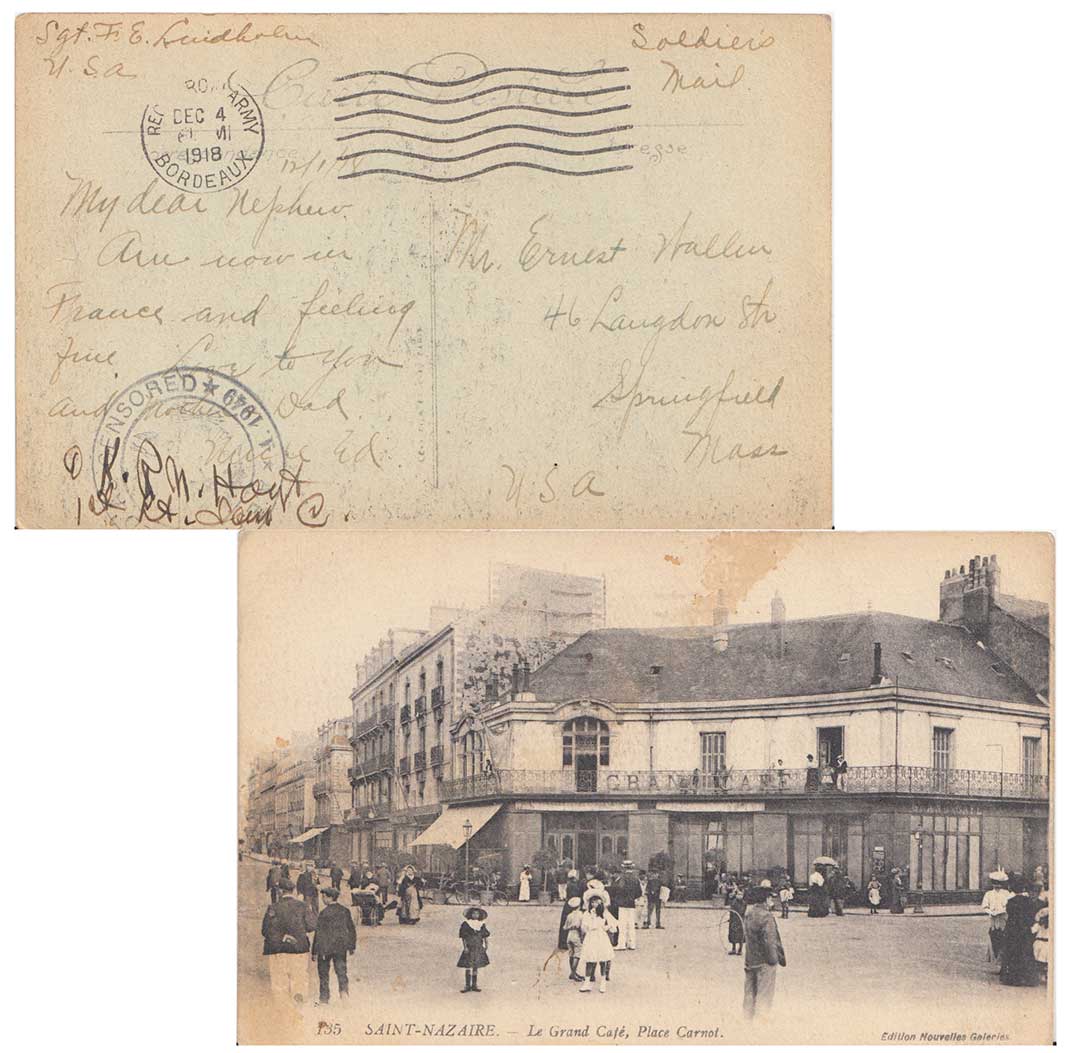 Sgt. F. E. Lindholm
U.S.A
Soldiers
Mail.
Carte Postale
ARMY
DEC 4
1918
BORDEAUX
Correspondance
Adresse
12/1/18
My dear Nephew
Am now in
France and feeling
fine. Love to you
and Mother Dad.
Ed.
Mr. Ernest Wallin
46 Langdon Str
Springfield
Mass
U.S.A
CENSORED ★ A. 1949 ★
R. N. Hoyt
1st Lt.
GRAND CAFÉ
135 SAINT-NAZAIRE. — Le Grand Café, Place Carnot.
Edition Nouvelles Galeries.